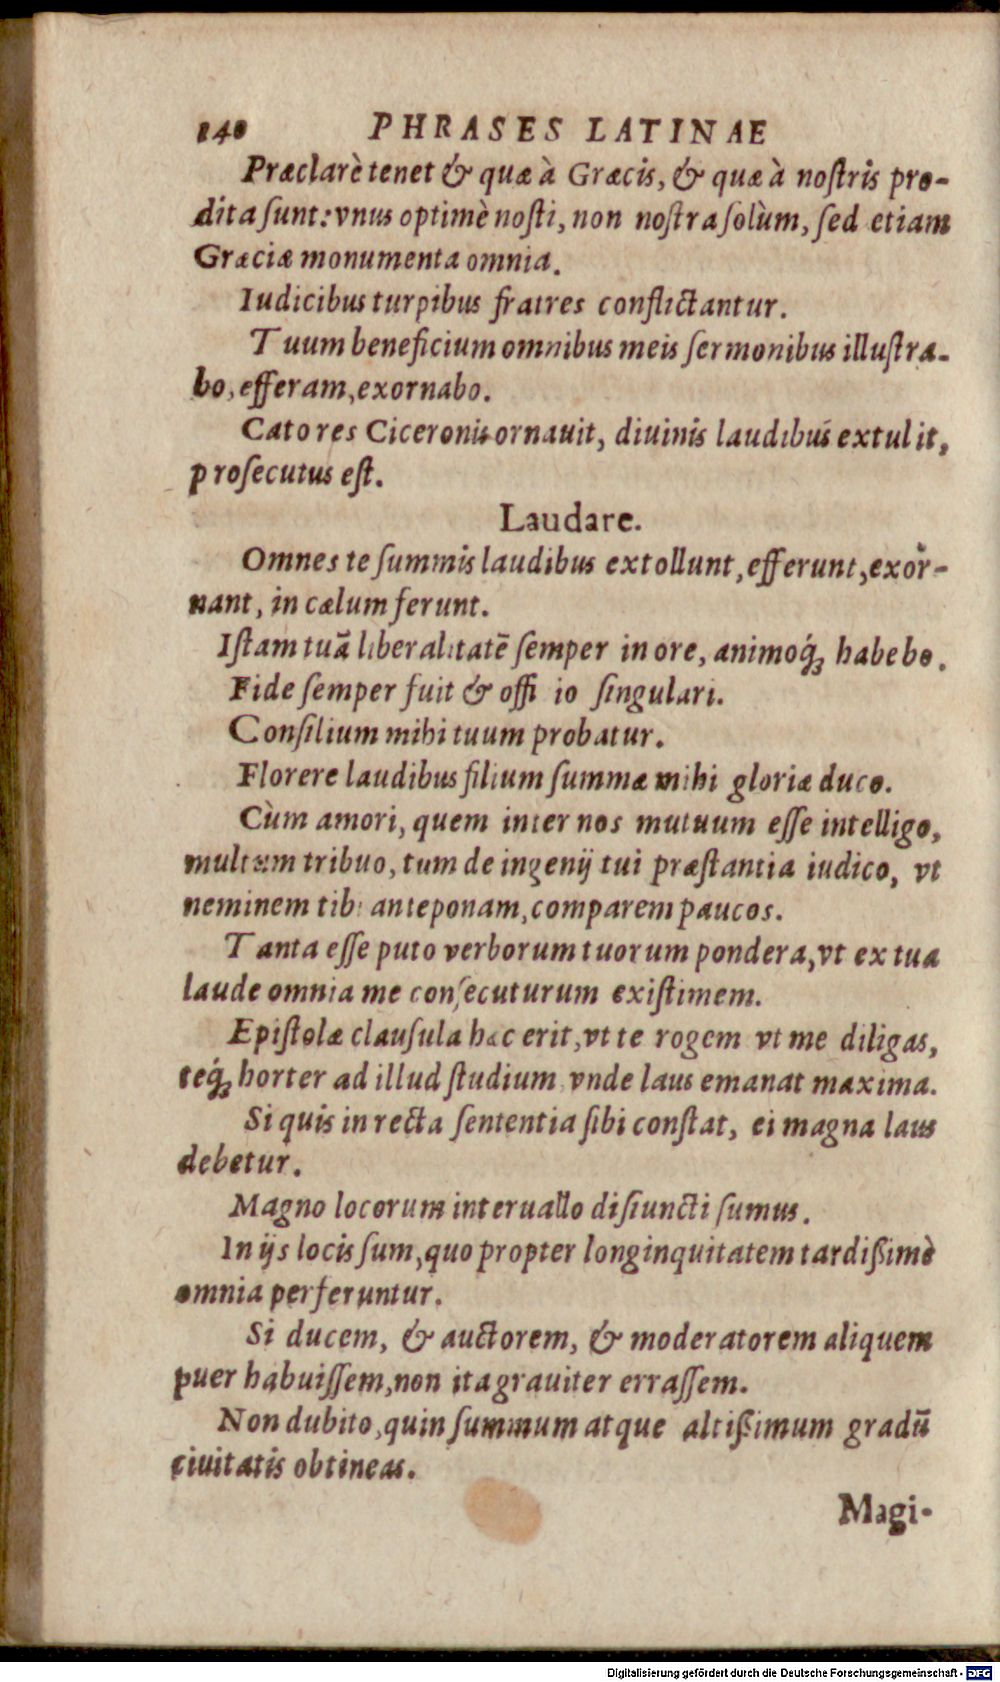 140 PHRASES LATINAE
Præclarè tenet & quæ à Græcis, & quæ à nostris pro-
dita sunt: vnus optimè nosti, non nostra solùm, sed etiam
Græciæ monumenta omnia.
Iudicibus turpibus fratres conflictantur.
Tuum beneficium omnibus meis sermonibus illustra-
bo, efferam, exornabo.
Cato res Ciceronis ornauit, diuinis laudibus extulit,
prosecutus est.
Laudare.
Omnes te summis laudibus extollunt, efferunt, exor-
nant, in cælum ferunt.
Istam tuã liberalitatẽ semper in ore, animoq́; habebo.
Fide semper fuit & offi io singulari.
Consilium mihi tuum probatur.
Florere laudibus filium summæ mihi gloriæ duco.
Cùm amori, quem inter nos mutuum esse intelligo,
multum tribuo, tum de ingenij tui præstantia iudico, vt
neminem tibi anteponam, comparem paucos.
Tanta esse puto verborum tuorum pondera, vt ex tua
laude omnia me consecuturum existimem.
Epistolæ clausula hæc erit, vt te rogem vt me diligas,
teq́; horter ad illud studium vnde laus emanat maxima.
Si quis in recta sententia sibi constat, ei magna laus
debetur.
Magno locorum interuallo disiuncti sumus.
In ijs locis sum, quo propter longinquitatem tardißimè
omnia perferuntur.
Si ducem, & auctorem, & moderatorem aliquem
puer habuissem, non ita grauiter errassem.
Non dubito, quin summum atque altißimum gradũ
ciuitatis obtineas.
Magi-
Digitalisierung gefördert durch die Deutsche Forschungsgemeinschaft - DFG